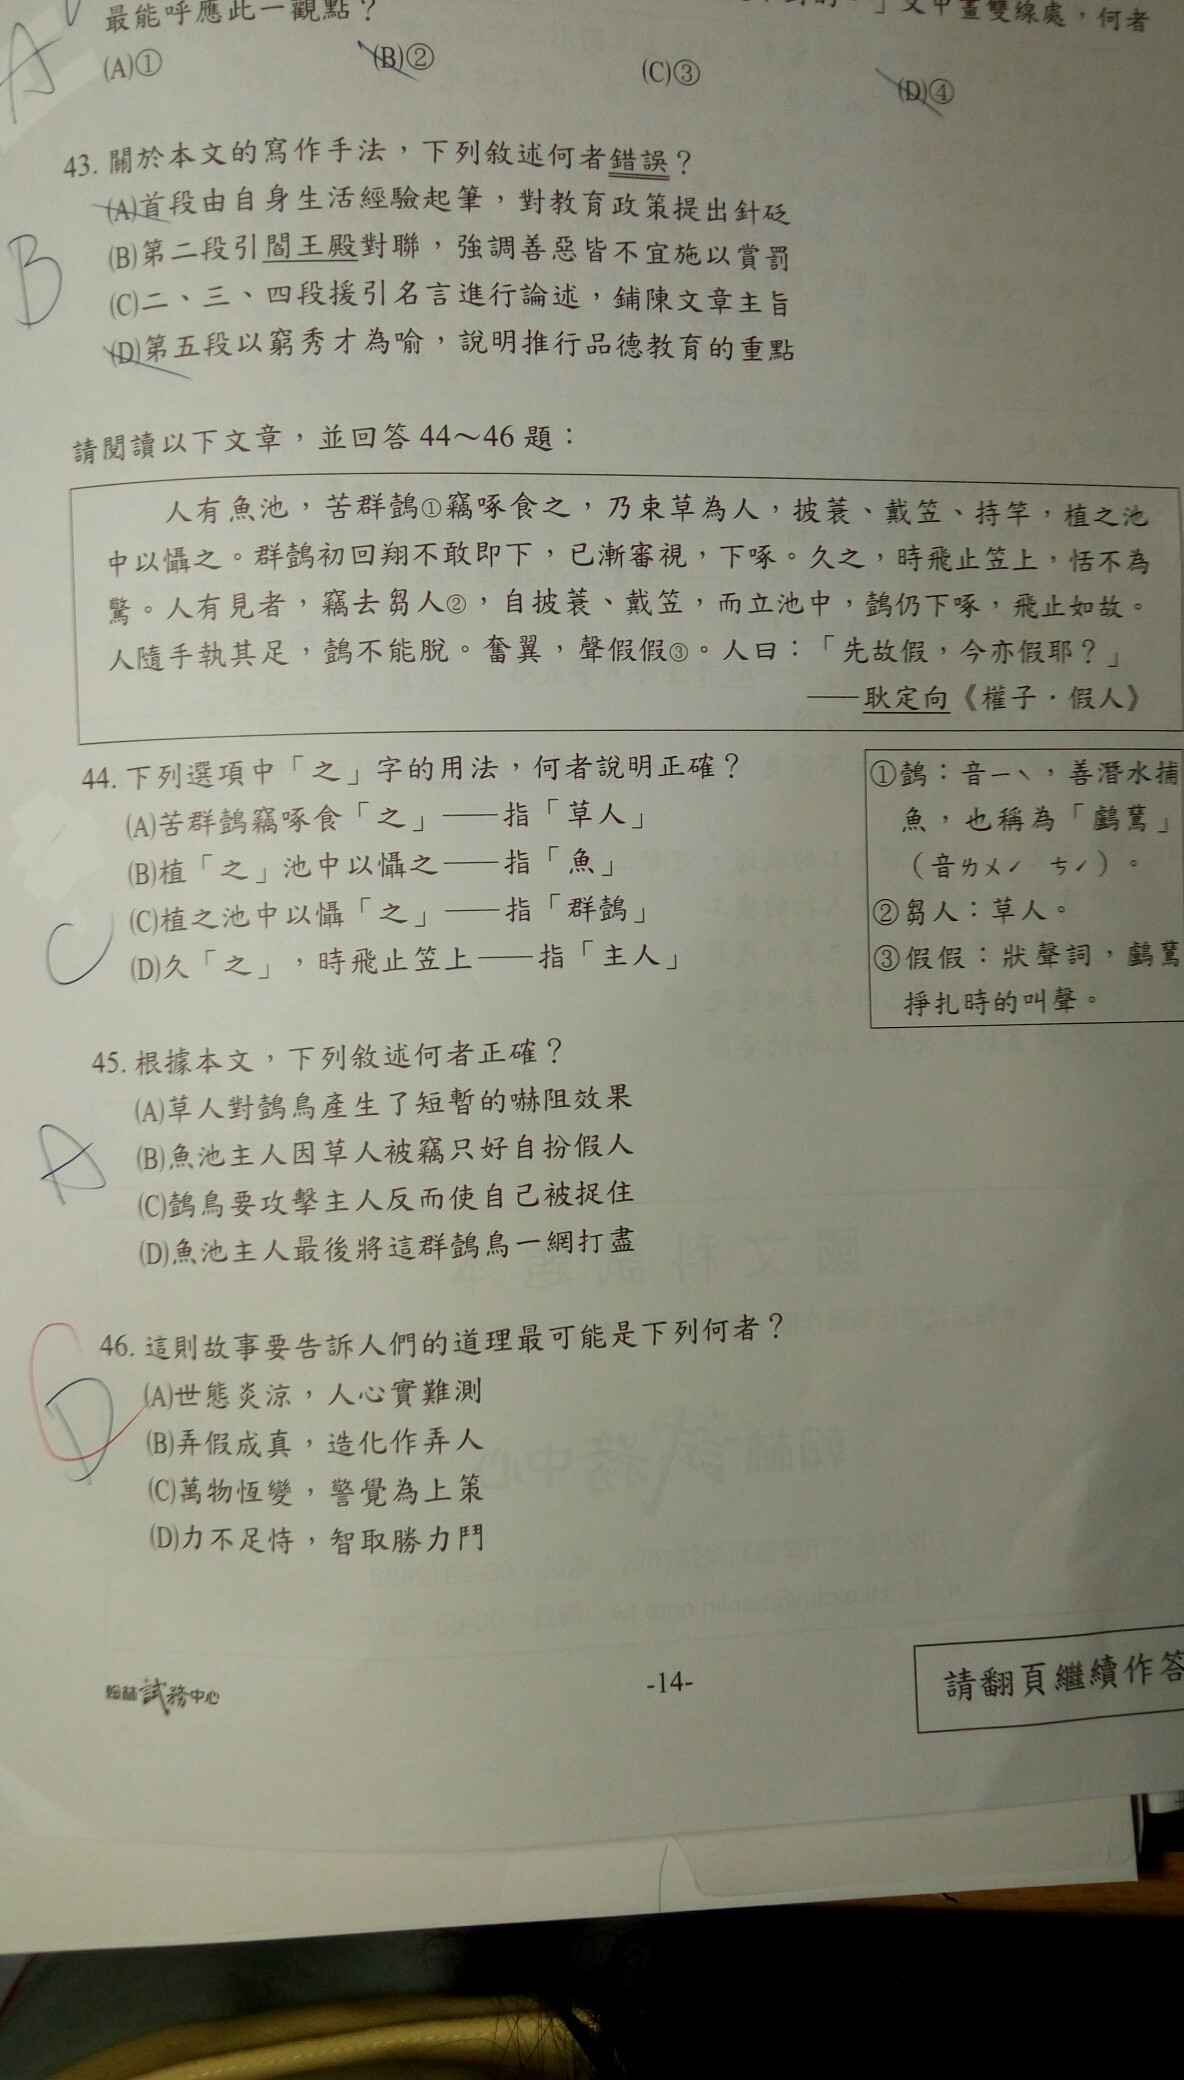 」文中畫雙線處，何者
最能呼應此一觀點？
(A)① (B)② (C)③ (D)④
A
43. 關於本文的寫作手法，下列敘述何者錯誤？
(A)首段由自身生活經驗起筆，對教育政策提出針砭
(B)第二段引閻王殿對聯，強調善惡皆不宜施以賞罰
(C)二、三、四段援引名言進行論述，鋪陳文章主旨
(D)第五段以窮秀才為喻，說明推行品德教育的重點
B
請閱讀以下文章，並回答44～46題：
人有魚池，苦群鷁①竊啄食之，乃束草為人，披蓑、戴笠、持竿，植之池
中以懾之。群鷁初回翔不敢即下，已漸審視，下啄。久之，時飛止笠上，恬不為
驚。人有見者，竊去芻人②，自披蓑、戴笠，而立池中，鷁仍下啄，飛止如故。
人隨手執其足，鷁不能脫。奮翼，聲假假③。人曰：「先故假，今亦假耶？」
——耿定向《權子．假人》
44. 下列選項中「之」字的用法，何者說明正確？
(A)苦群鷁竊啄食「之」——指「草人」
(B)植「之」池中以懾之——指「魚」
(C)植之池中以懾「之」——指「群鷁」
(D)久「之」，時飛止笠上——指「主人」
C
①鷁：音ㄧˋ，善潛水捕
魚，也稱為「鸕鶿」
（音ㄌㄨˊ ㄘˊ）。
②芻人：草人。
③假假：狀聲詞，鸕鶿
掙扎時的叫聲。
45. 根據本文，下列敘述何者正確？
(A)草人對鷁鳥產生了短暫的嚇阻效果
(B)魚池主人因草人被竊只好自扮假人
(C)鷁鳥要攻擊主人反而使自己被捉住
(D)魚池主人最後將這群鷁鳥一網打盡
A
46. 這則故事要告訴人們的道理最可能是下列何者？
(A)世態炎涼，人心實難測
(B)弄假成真，造化作弄人
(C)萬物恆變，警覺為上策
(D)力不足恃，智取勝力鬥
C
D
翰林試務中心
-14-
請翻頁繼續作答